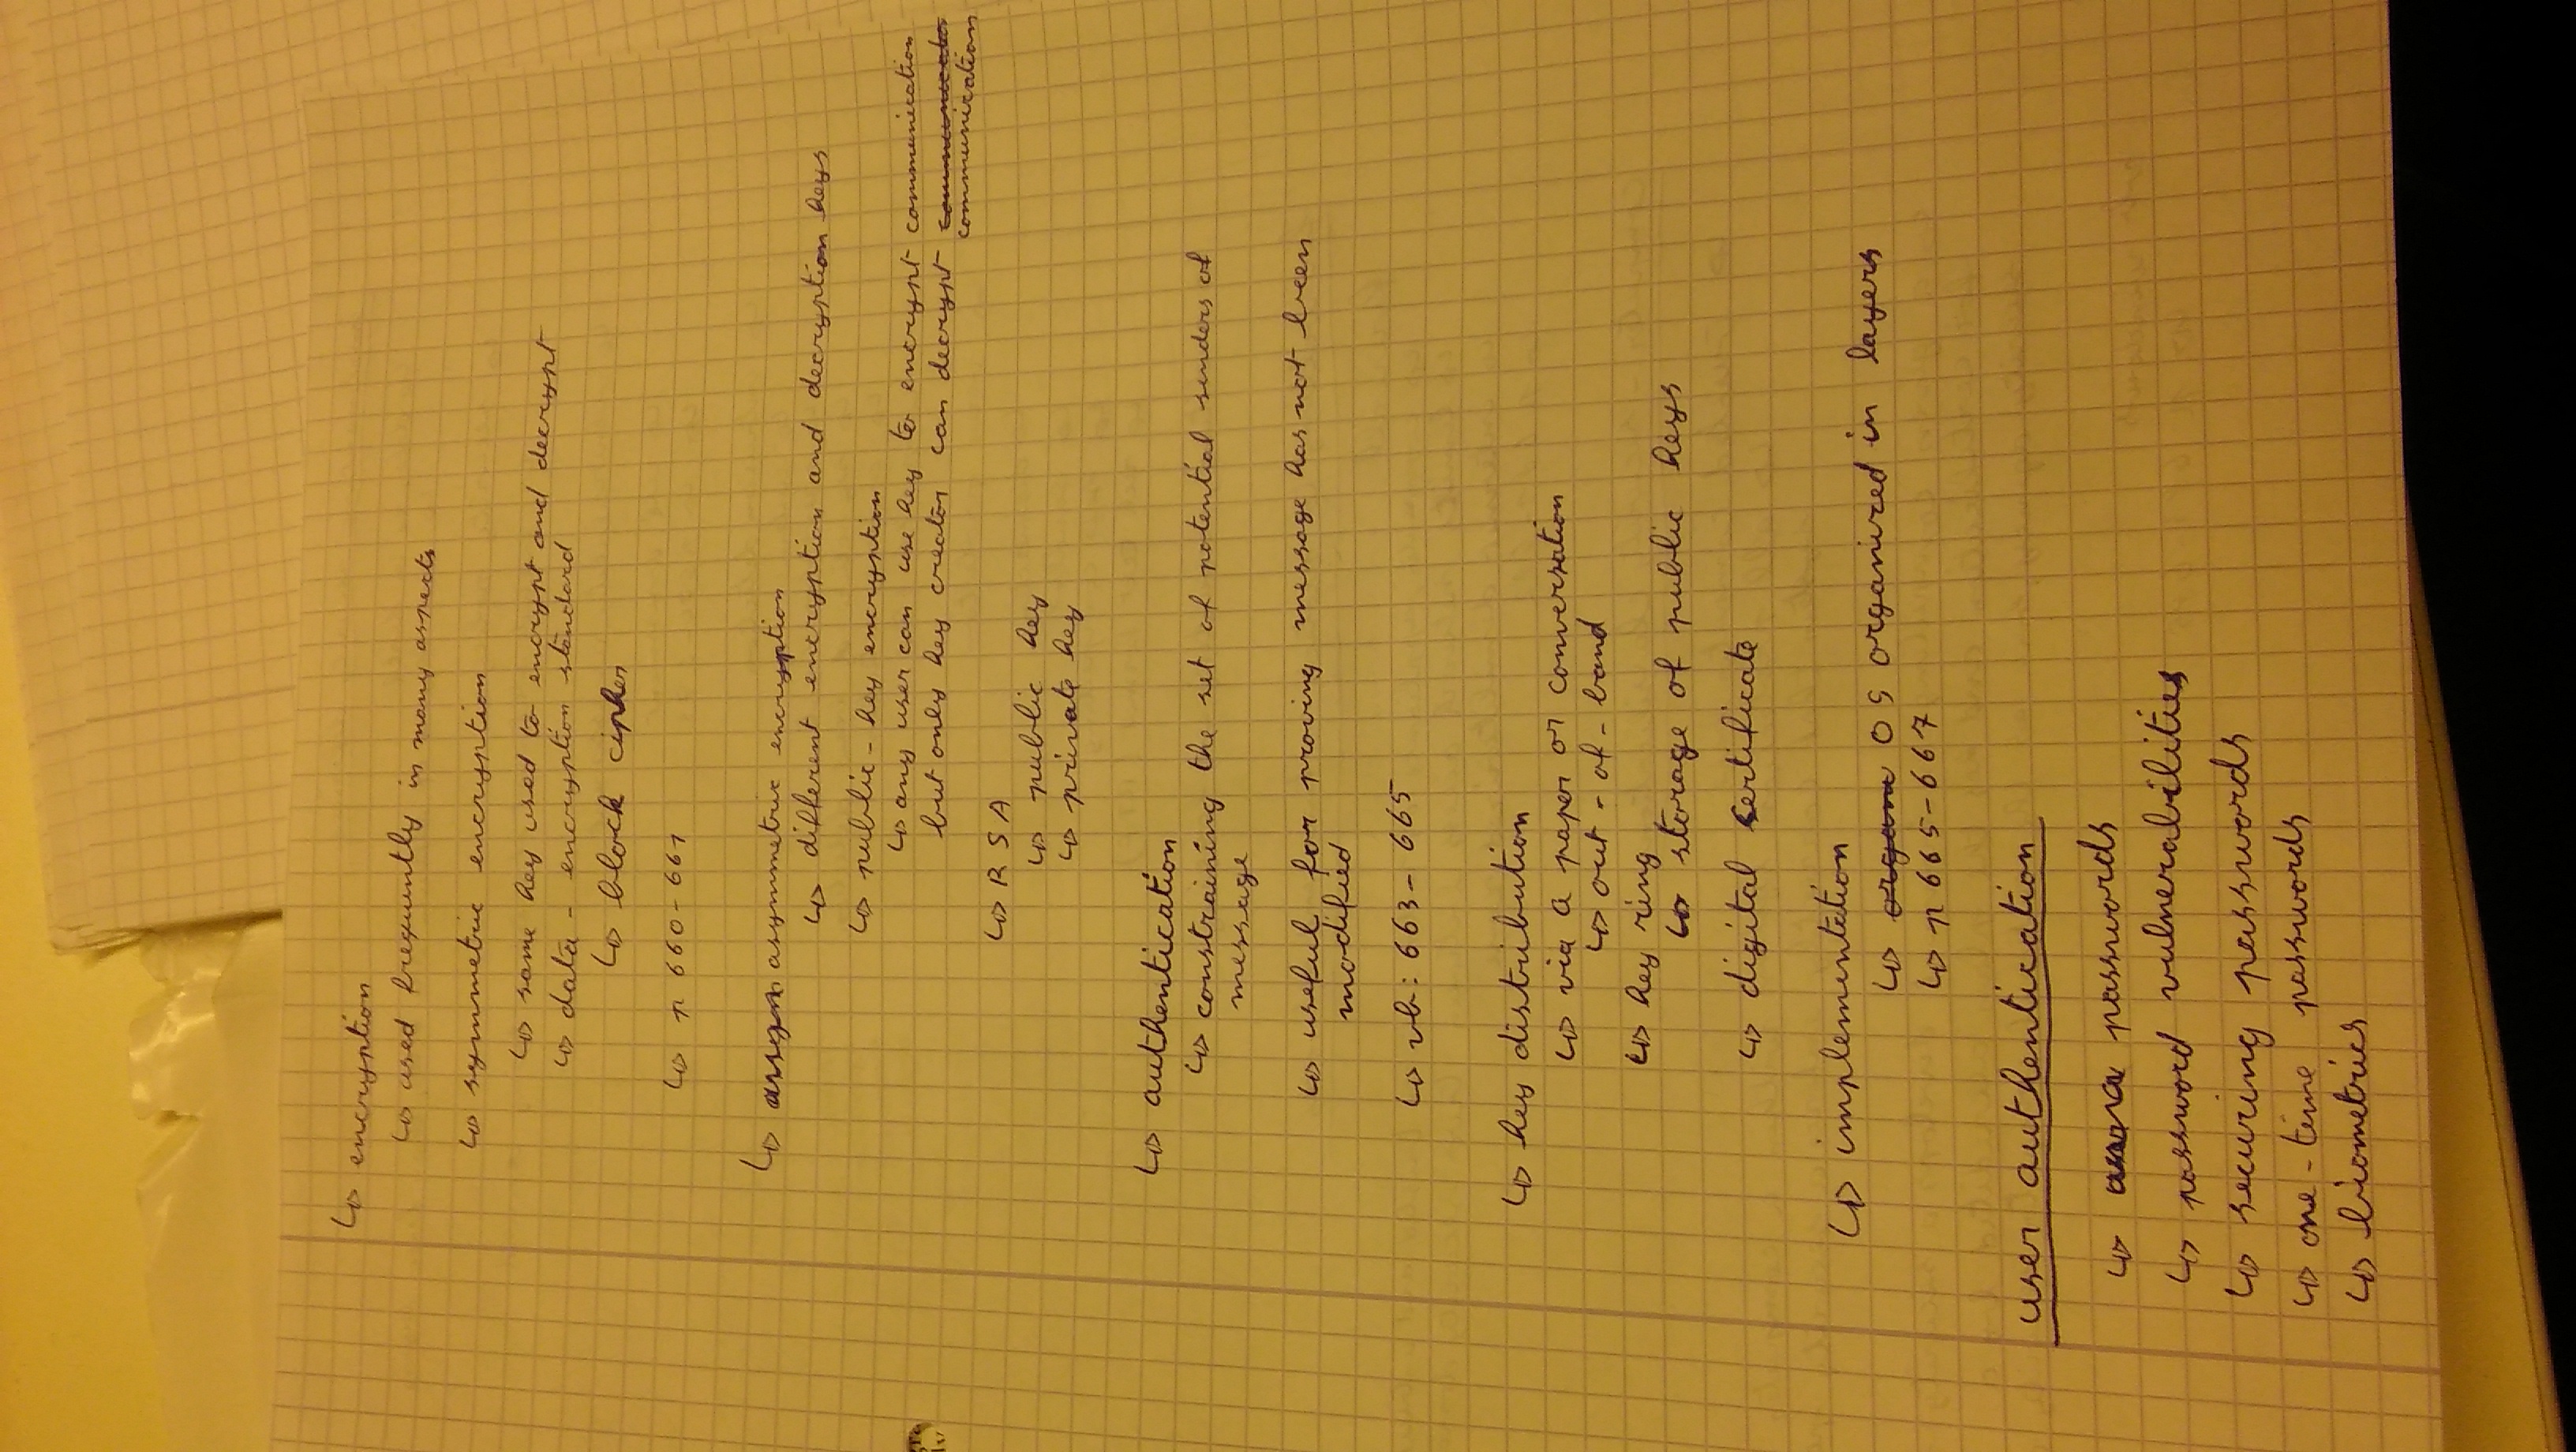 ↳ encryption
↳ used frequently in many aspects
↳ symmetric encryption
↳ same key used to encrypt and decrypt
↳ data - encryption standard
↳ block cipher
↳ p 660-661
↳ asymmetric encryption
↳ different encryption and decryption keys
↳ public - key encryption
↳ any user can use key to encrypt communication
but only key creator can decrypt
communication
↳ RSA
↳ public key
↳ private key
↳ authentication
↳ constraining the set of potential senders of
message
↳ useful for proving message has not been
modified
↳ vb: 663- 665
↳ key distribution
↳ via a paper or conversation
↳ out - of - band
↳ key ring
↳ storage of public keys
↳ digital certificate
↳ implementation
↳ OS organized in layers
↳ p 665-667
user authentication
↳ passwords
↳ password vulnerabilities
↳ securing passwords
↳ one - time passwords
↳ biometrics